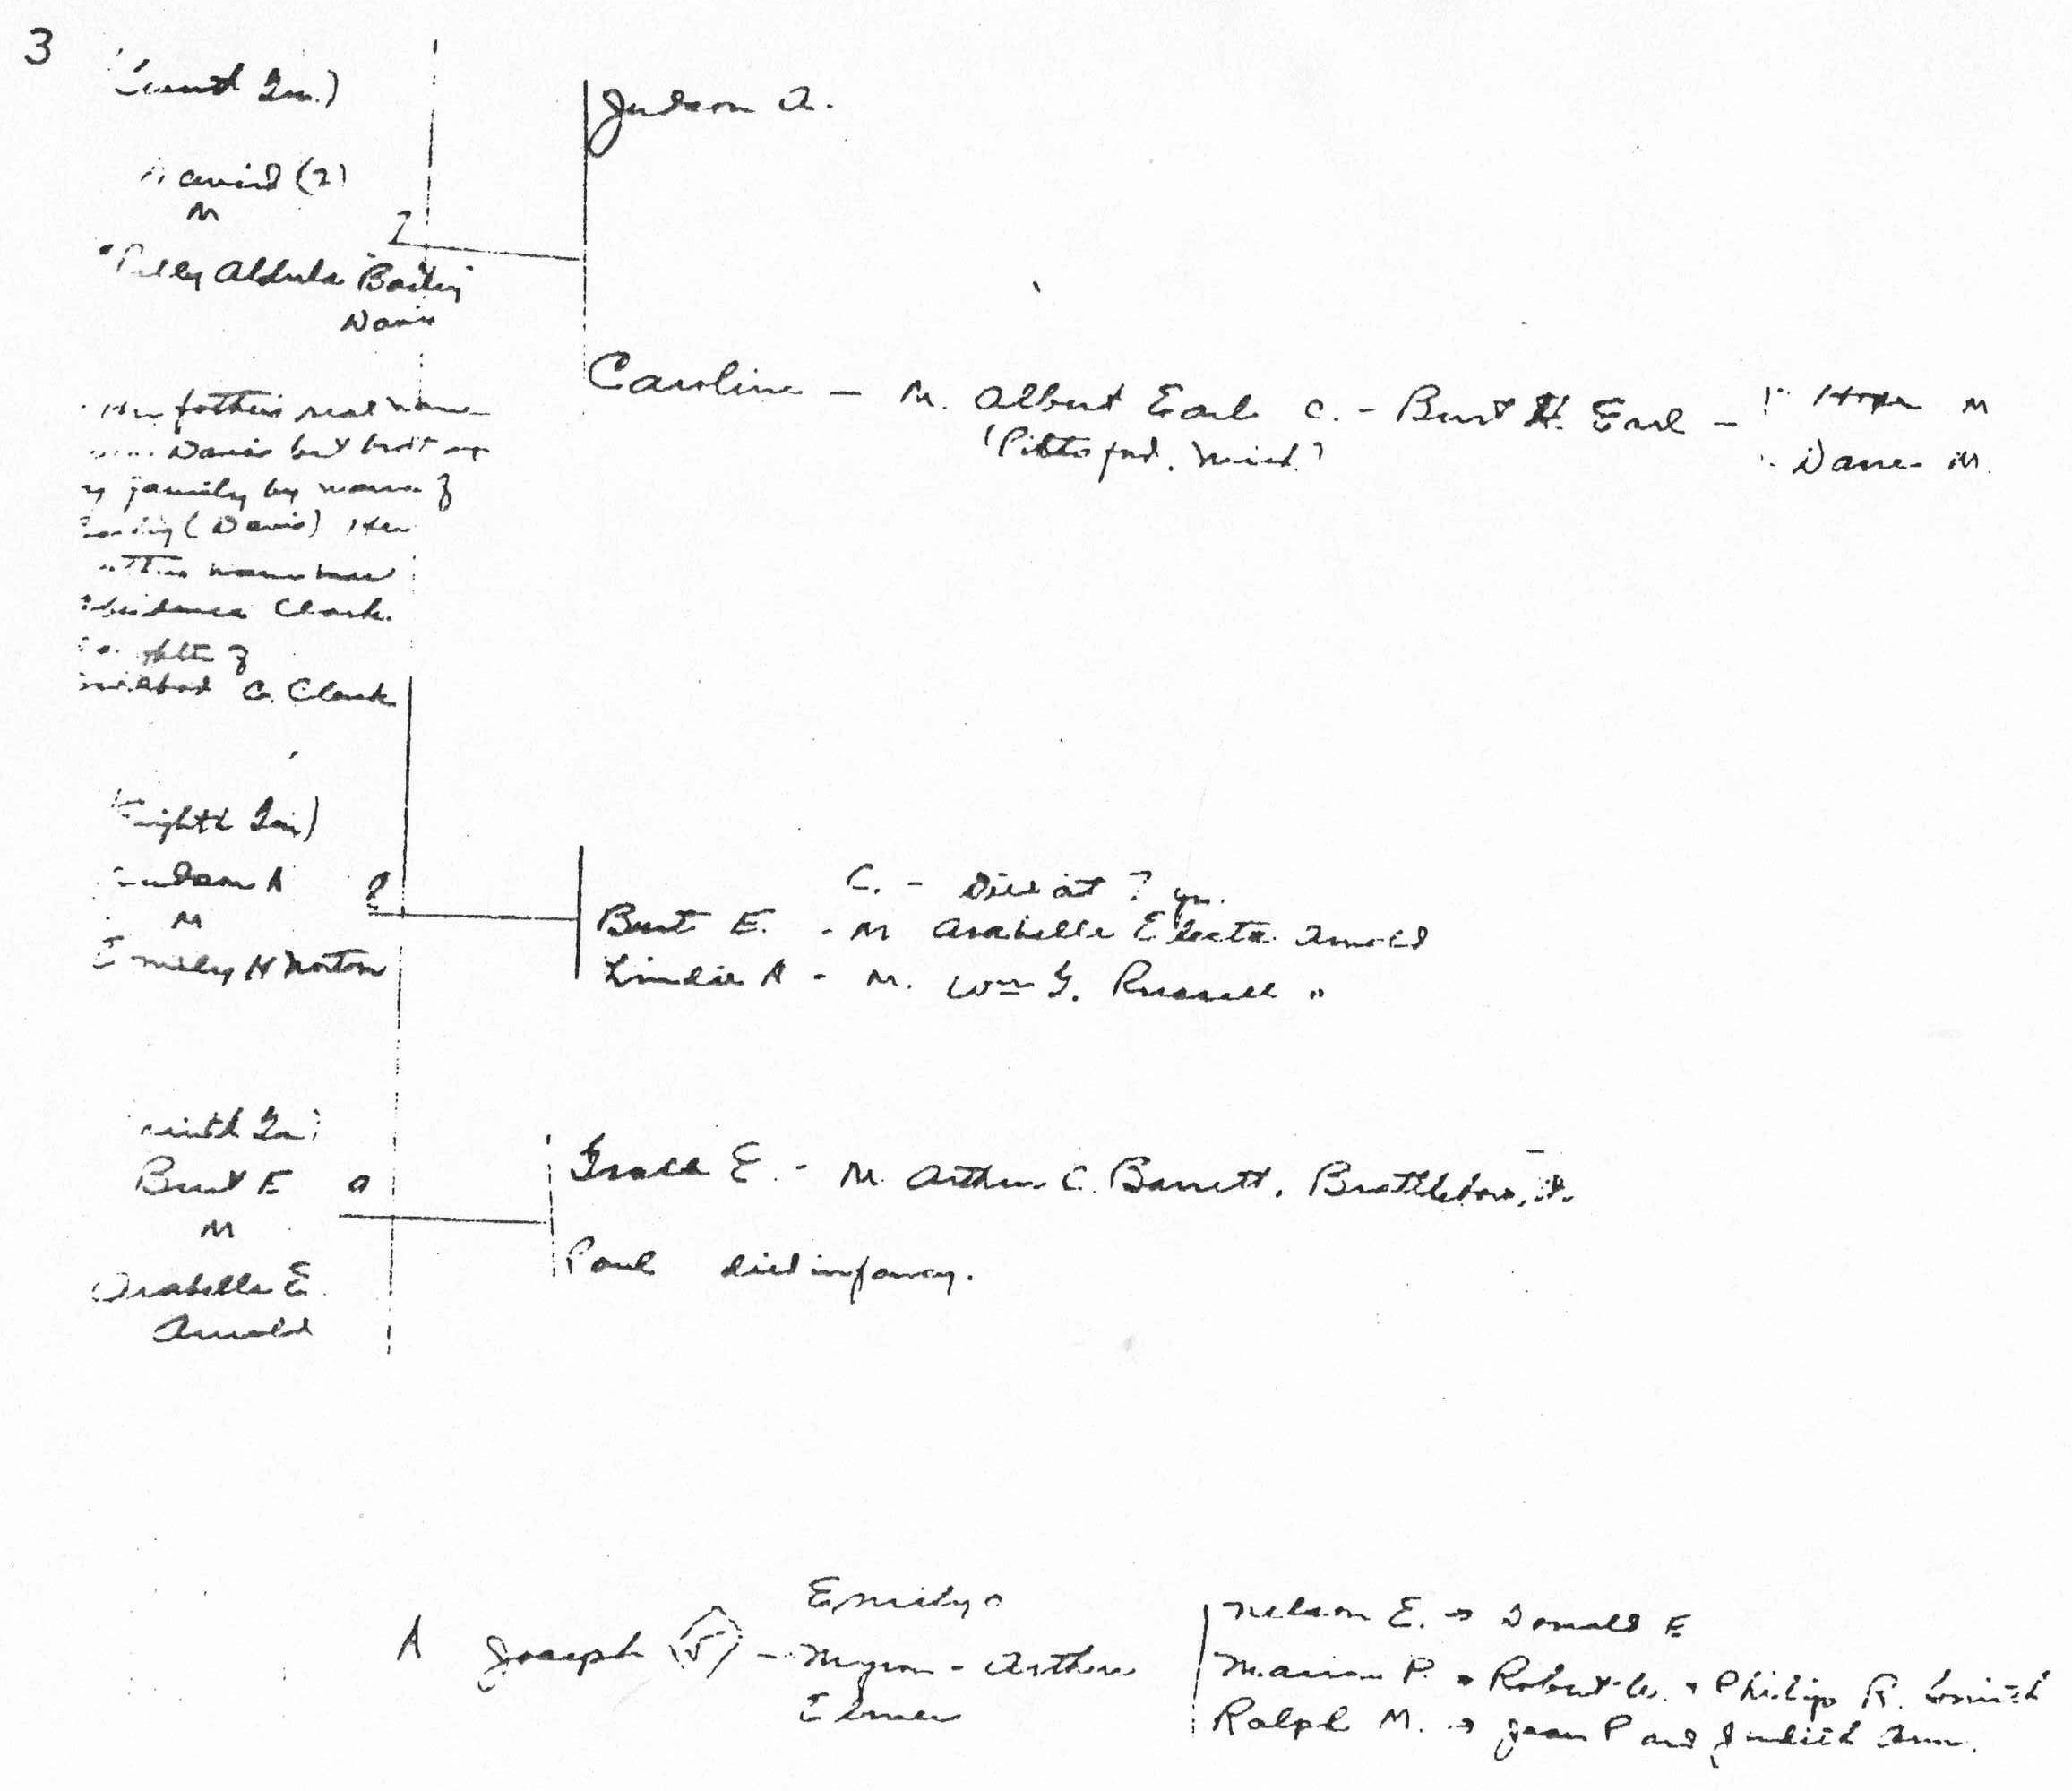 3
Gen.)
Judson A.
(2)
M
7
Aldula "Bailey"
Davis
Caroline - M. Albert Earl C. - Burt H. Earl - Hope M
(Pittsford, Mich.)
M.
Her father's real name
Davis but bro't up
family by name of
(Davis) Her
name was
Clark.
of
C. Clark
Eighth Gen)
Judson A 8
M
Emily H Norton
C. - Died at 7 yr.
Burt E. - M Arabelle Electa Arnold
A - M. Wm G. Russell "
Gen)
Burt E 9
M
Arabelle E.
Arnold
Grace E. - M. Arthur C. Barrett, Brattleboro, Vt.
Paul died infancy.
Emily
A Joseph (5) - Myron - Arthur
Elmer
Nelson E. → Donald E
Marion P. → Robert W. + Philip R. Smith
Ralph M. → Jean P and Judith Ann.